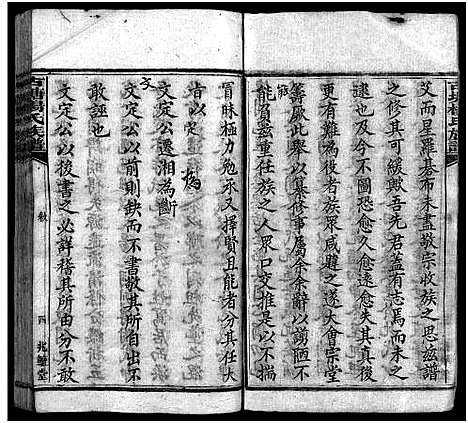 艾而星羅棊布未盡敬宗收族之思茲譜
之修其可緩歟吾先君蓋有志焉而未之
逮也然今不圖恐愈久愈遠愈失其真後
更有難為後者族眾咸韙之遂大會宗堂
籌厥此舉以纂修事屬余余辭以謭陋不
能
能負茲重任族之人眾口交推是以
冒昧極力勉承又擇賢且能者分其任大
旨以
定
為
文
文定公遷湘為斷
文定公以前則缺而不書敬其所自出不
敢誣也
文定公以後書之必詳稽其所由分不敢
氏族譜
敘
四
兆
堂